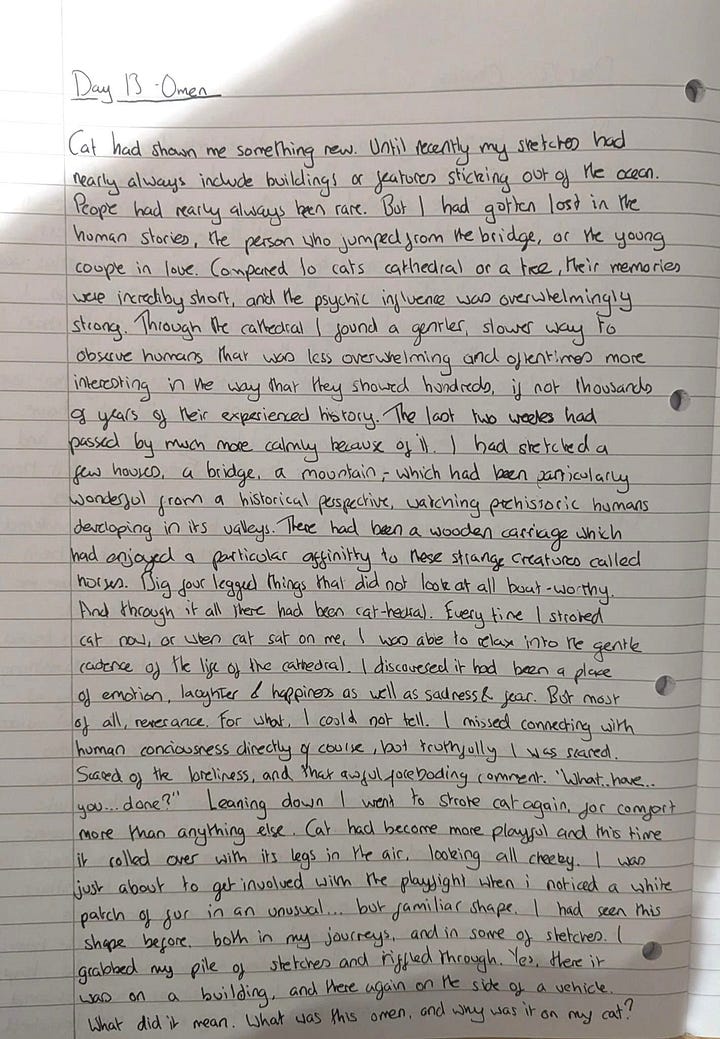 Day 13 - Omen
Cat had shown me something new. Until recently my sketches had
nearly always include buildings or features sticking out of the ocean.
People had nearly always been rare. But I had gotten lost in the
human stories, the person who jumped from the bridge, or the young
couple in love. Compared to cats cathedral or a tree, their memories
were incredibly short, and the psychic influence was overwhelmingly
strong. Through the cathedral I found a gentler, slower way to
observe humans that was less overwhelming and oftentimes more
interesting in the way that they showed hundreds, if not thousands
of years of their experienced history. The last two weeks had
passed by much more calmly because of it. I had sketched a
few houses, a bridge, a mountain, - which had been particularly
wonderful from a historical perspective, watching prehistoric humans
developing in its valleys. There had been a wooden carriage which
had enjoyed a particular affinitty to these strange creatures called
horses. Big four legged things that did not look at all boat-worthy.
And through it all there had been cat-hedral. Every time I stroked
cat now, or when cat sat on me, I was abe to relax into the gentle
cadence of the life of the cathedral. I discovered it had been a place
of emotion, laughter & happiness as well as sadness & fear. But most
of all, reverance. For what, I could not tell. I missed connecting with
human conciousness directly of course, but truthfully I was scared.
Scared of the loneliness, and that awful foreboding comment. "What..have..
you...done?" Leaning down I went to stroke cat again, for comfort
more than anything else. Cat had become more playful and this time
it rolled over with its legs in the air, looking all cheeky. I was
just about to get involved with the playfight when i noticed a white
patch of fur in an unusual... but familiar shape. I had seen this
shape before, both in my journeys, and in some of sketches. I
grabbed my pile of sketches and riffled through. Yes, there it
was on a building, and there again on the side of a vehicle.
What did it mean. What was this omen, and why was it on my cat?